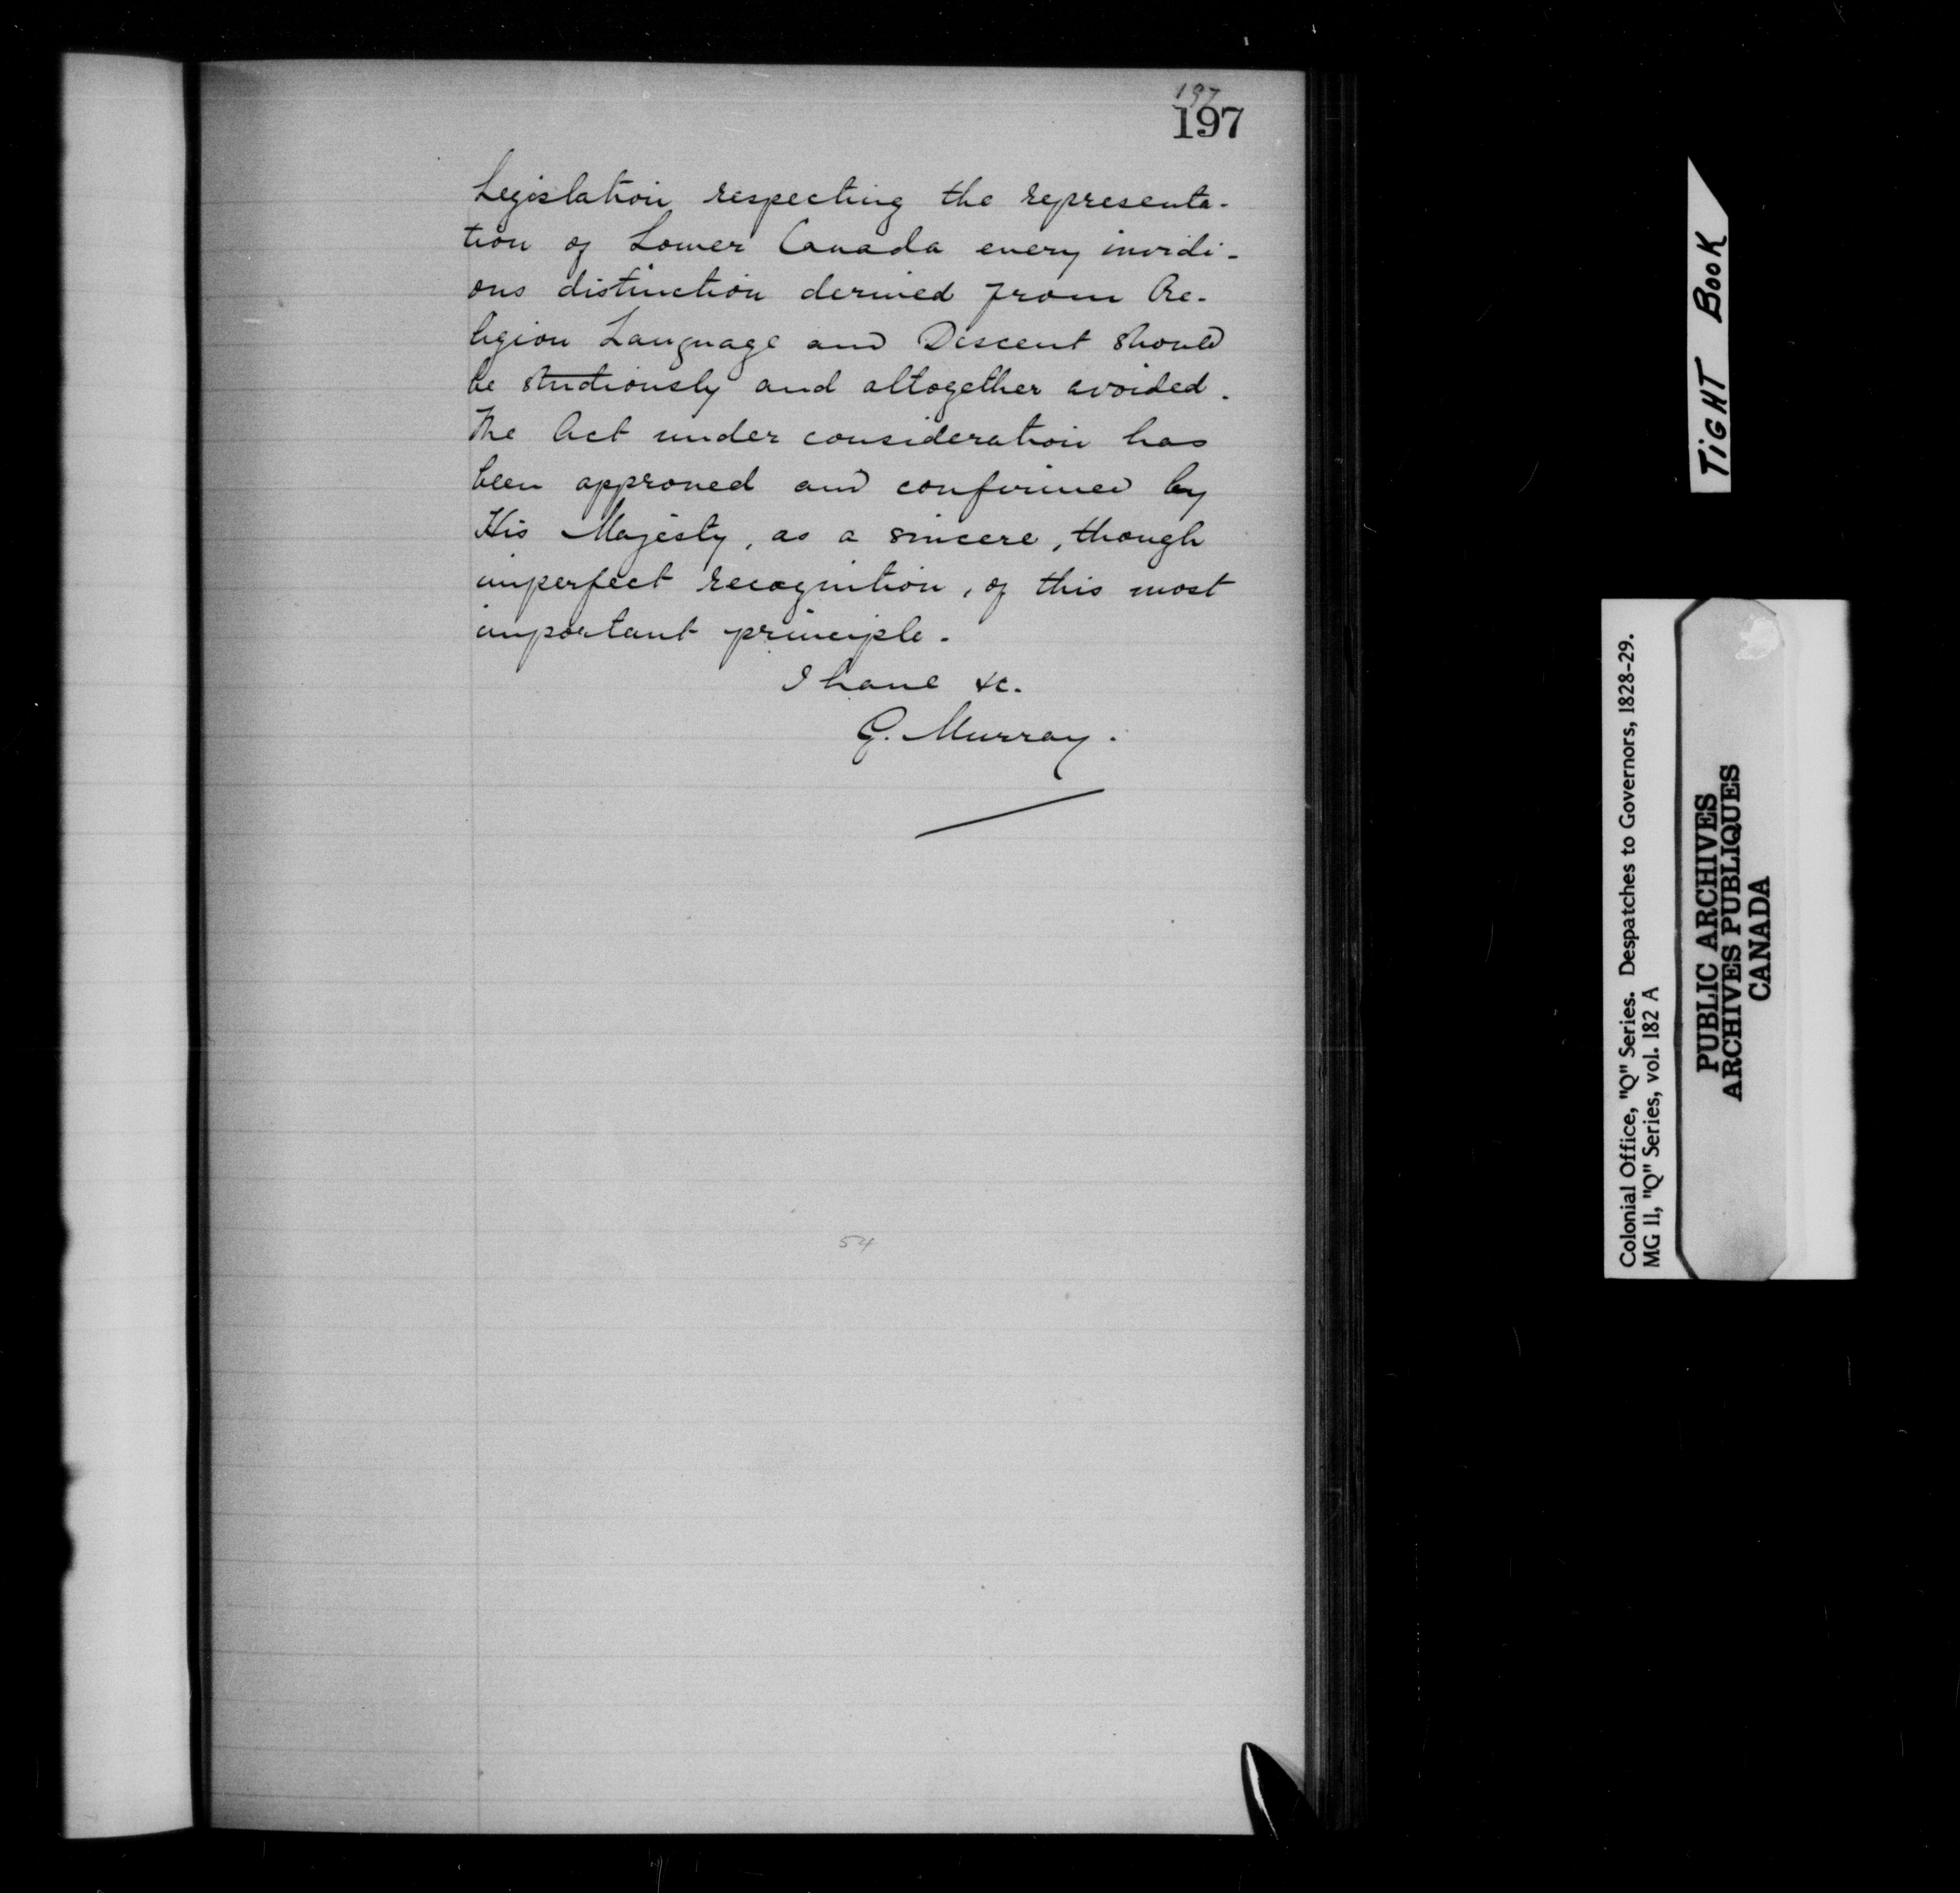 197
197
Legislation respecting the representa-
tion of Lower Canada every invidi-
ous distinction derived from Re-
ligion Language and Descent should
be studiously and altogether avoided.
The Act under consideration has
been approved and confirmed by
His Majesty, as a sincere, though
imperfect recognition, of this most
important principle.
I have &c.
G. Murray.
54
TIGHT BOOK
Colonial Office, "Q" Series. Despatches to Governors, 1828-29.
MG 11, "Q" Series, vol. 182 A
PUBLIC ARCHIVES
ARCHIVES PUBLIQUES
CANADA